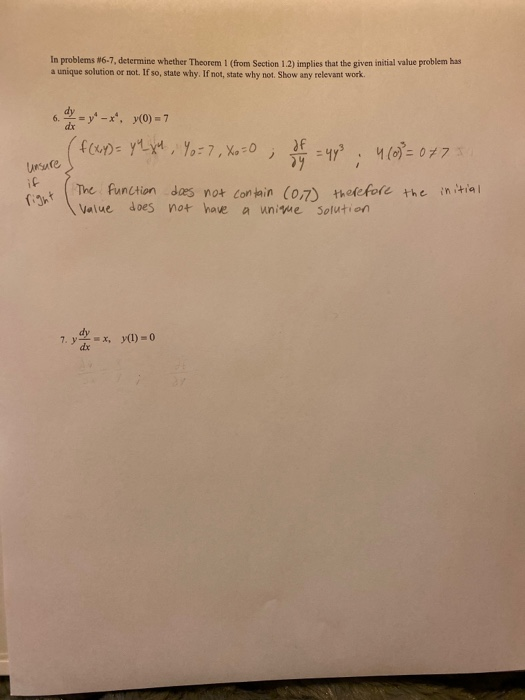 In problems #6-7, determine whether Theorem 1 (from Section 1.2) implies that the given initial value problem has
a unique solution or not. If so, state why. If not, state why not. Show any relevant work.
6. dy/dx = y⁴ – x⁴, y(0) = 7
f(x,y) = y⁴-x⁴, y₀=7, x₀=0 ; ∂f/∂y = 4y³ ; 4(0)³ = 0 ≠ 7
unsure
if
right
The function does not contain (0,7) therefore the initial
value does not have a unique solution
7. y dy/dx = x, y(1) = 0